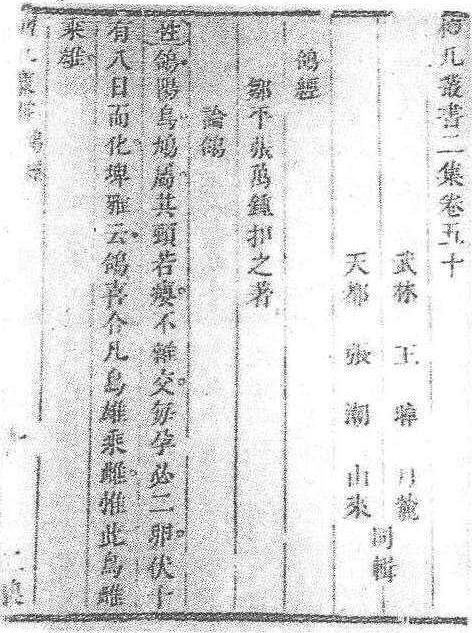 檀几叢書二集卷五十
武林 王晫 丹麓
天都 張潮 山來
同輯
鴿經
鄒平張萬鍾扣之著
論鴿
性鴿陽鳥鳩屬其頸若癭不雜交每孕必二卵伏十
有八日而化埤雅云鴿喜合凡鳥雄乘雌惟此鳥雌
乘雄